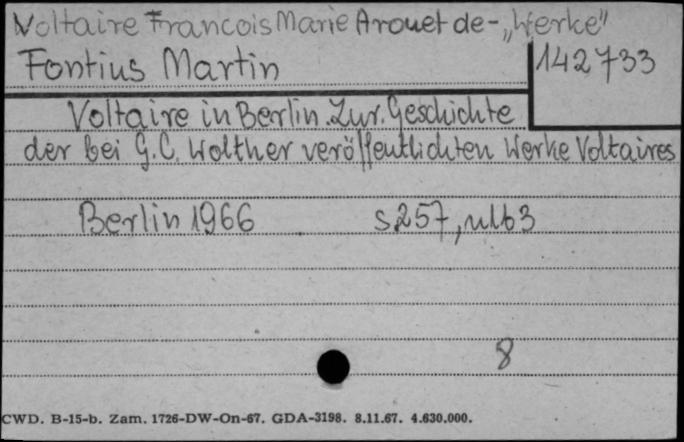 Voltaire Francois Marie Arouet de - „Werke"
Fontius Martin
142733
Voltaire in Berlin. Zur. Geschichte
der bei G.C. Wolther veröffentlichten Werke Voltaires
Berlin 1966 s.257, nlb3
8
CWD. B-15-b. Zam. 1726-DW-On-67. GDA-3198. 8.11.67. 4.630.000.